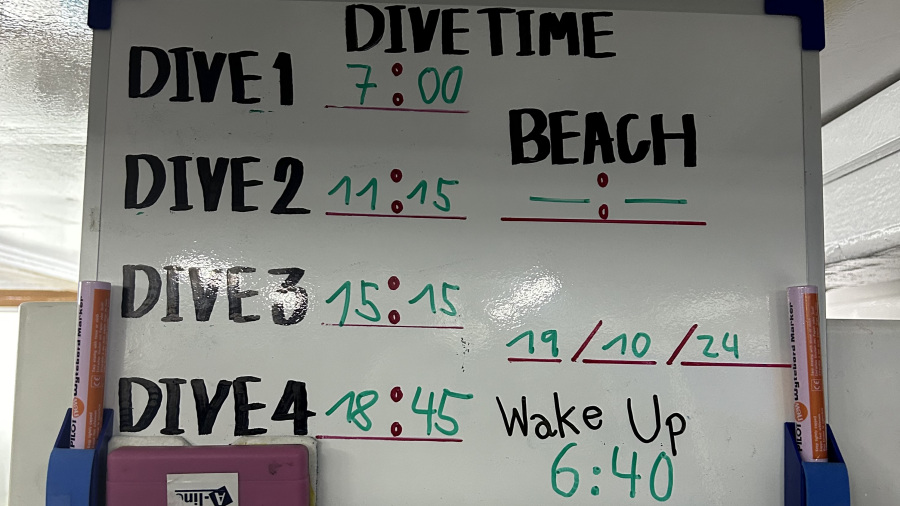 DIVE TIME
DIVE 1 7:00
BEACH
DIVE 2 11:15
— : —
DIVE 3 15:15
19/10/24
DIVE 4 18:45
Wake Up
6:40
PILOT Wyteboard Marker
PILOT Wyteboard Marker
A-line